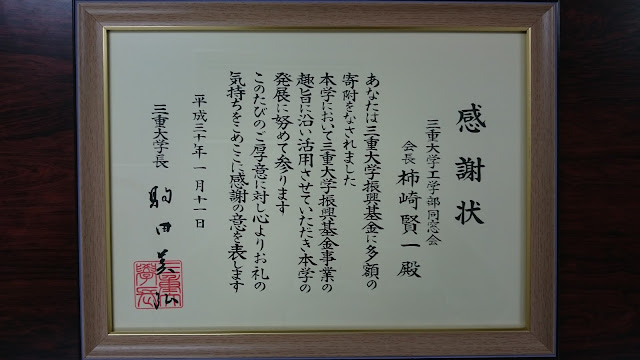 感謝状
三重大学工学部同窓会
会長 柿崎賢一殿
あなたは三重大学振興基金に多額の
寄附をなされました
本学において三重大学振興基金事業の
趣旨に沿い活用させていただき本学の
発展に努めて参ります
このたびのご厚意に対し心よりお礼の
気持ちをこめここに感謝の意を表します
平成三十年一月十一日
三重大学長 駒田美弘
三重大
学長